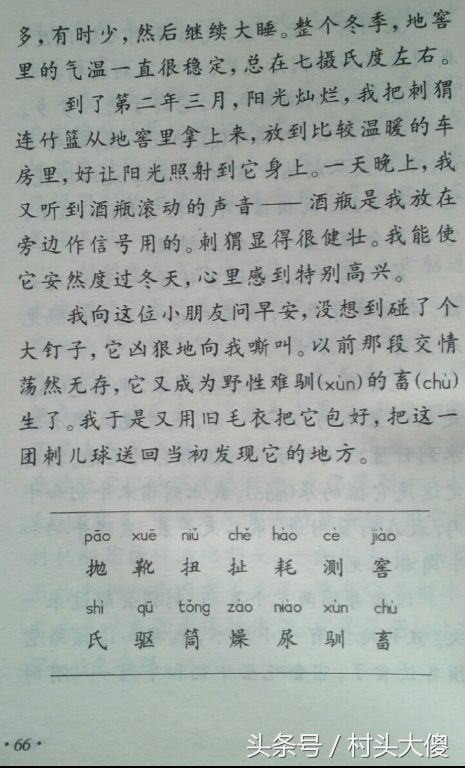 多，有时少，然后继续大睡。整个冬季，地窖
里的气温一直很稳定，总在七摄氏度左右。
到了第二年三月，阳光灿烂，我把刺猬
连竹篮从地窖里拿上来，放到比较温暖的车
房里，好让阳光照射到它身上。一天晚上，我
又听到酒瓶滚动的声音——酒瓶是我放在
旁边作信号用的。刺猬显得很健壮。我能使
它安然度过冬天，心里感到特别高兴。
我向这位小朋友问早安，没想到碰了个
大钉子，它凶狠地向我嘶叫。以前那段交情
荡然无存，它又成为野性难驯(xùn)的畜(chù)
生了。我于是又用旧毛衣把它包好，把这一
团刺儿球送回当初发现它的地方。
pāo xuē niǔ chě hào cè jiào
抛 靴 扭 扯 耗 测 窖
shì qū tǒng zào niào xùn chù
氏 驱 筒 燥 尿 驯 畜
·66·
头条号 / 村头大傻